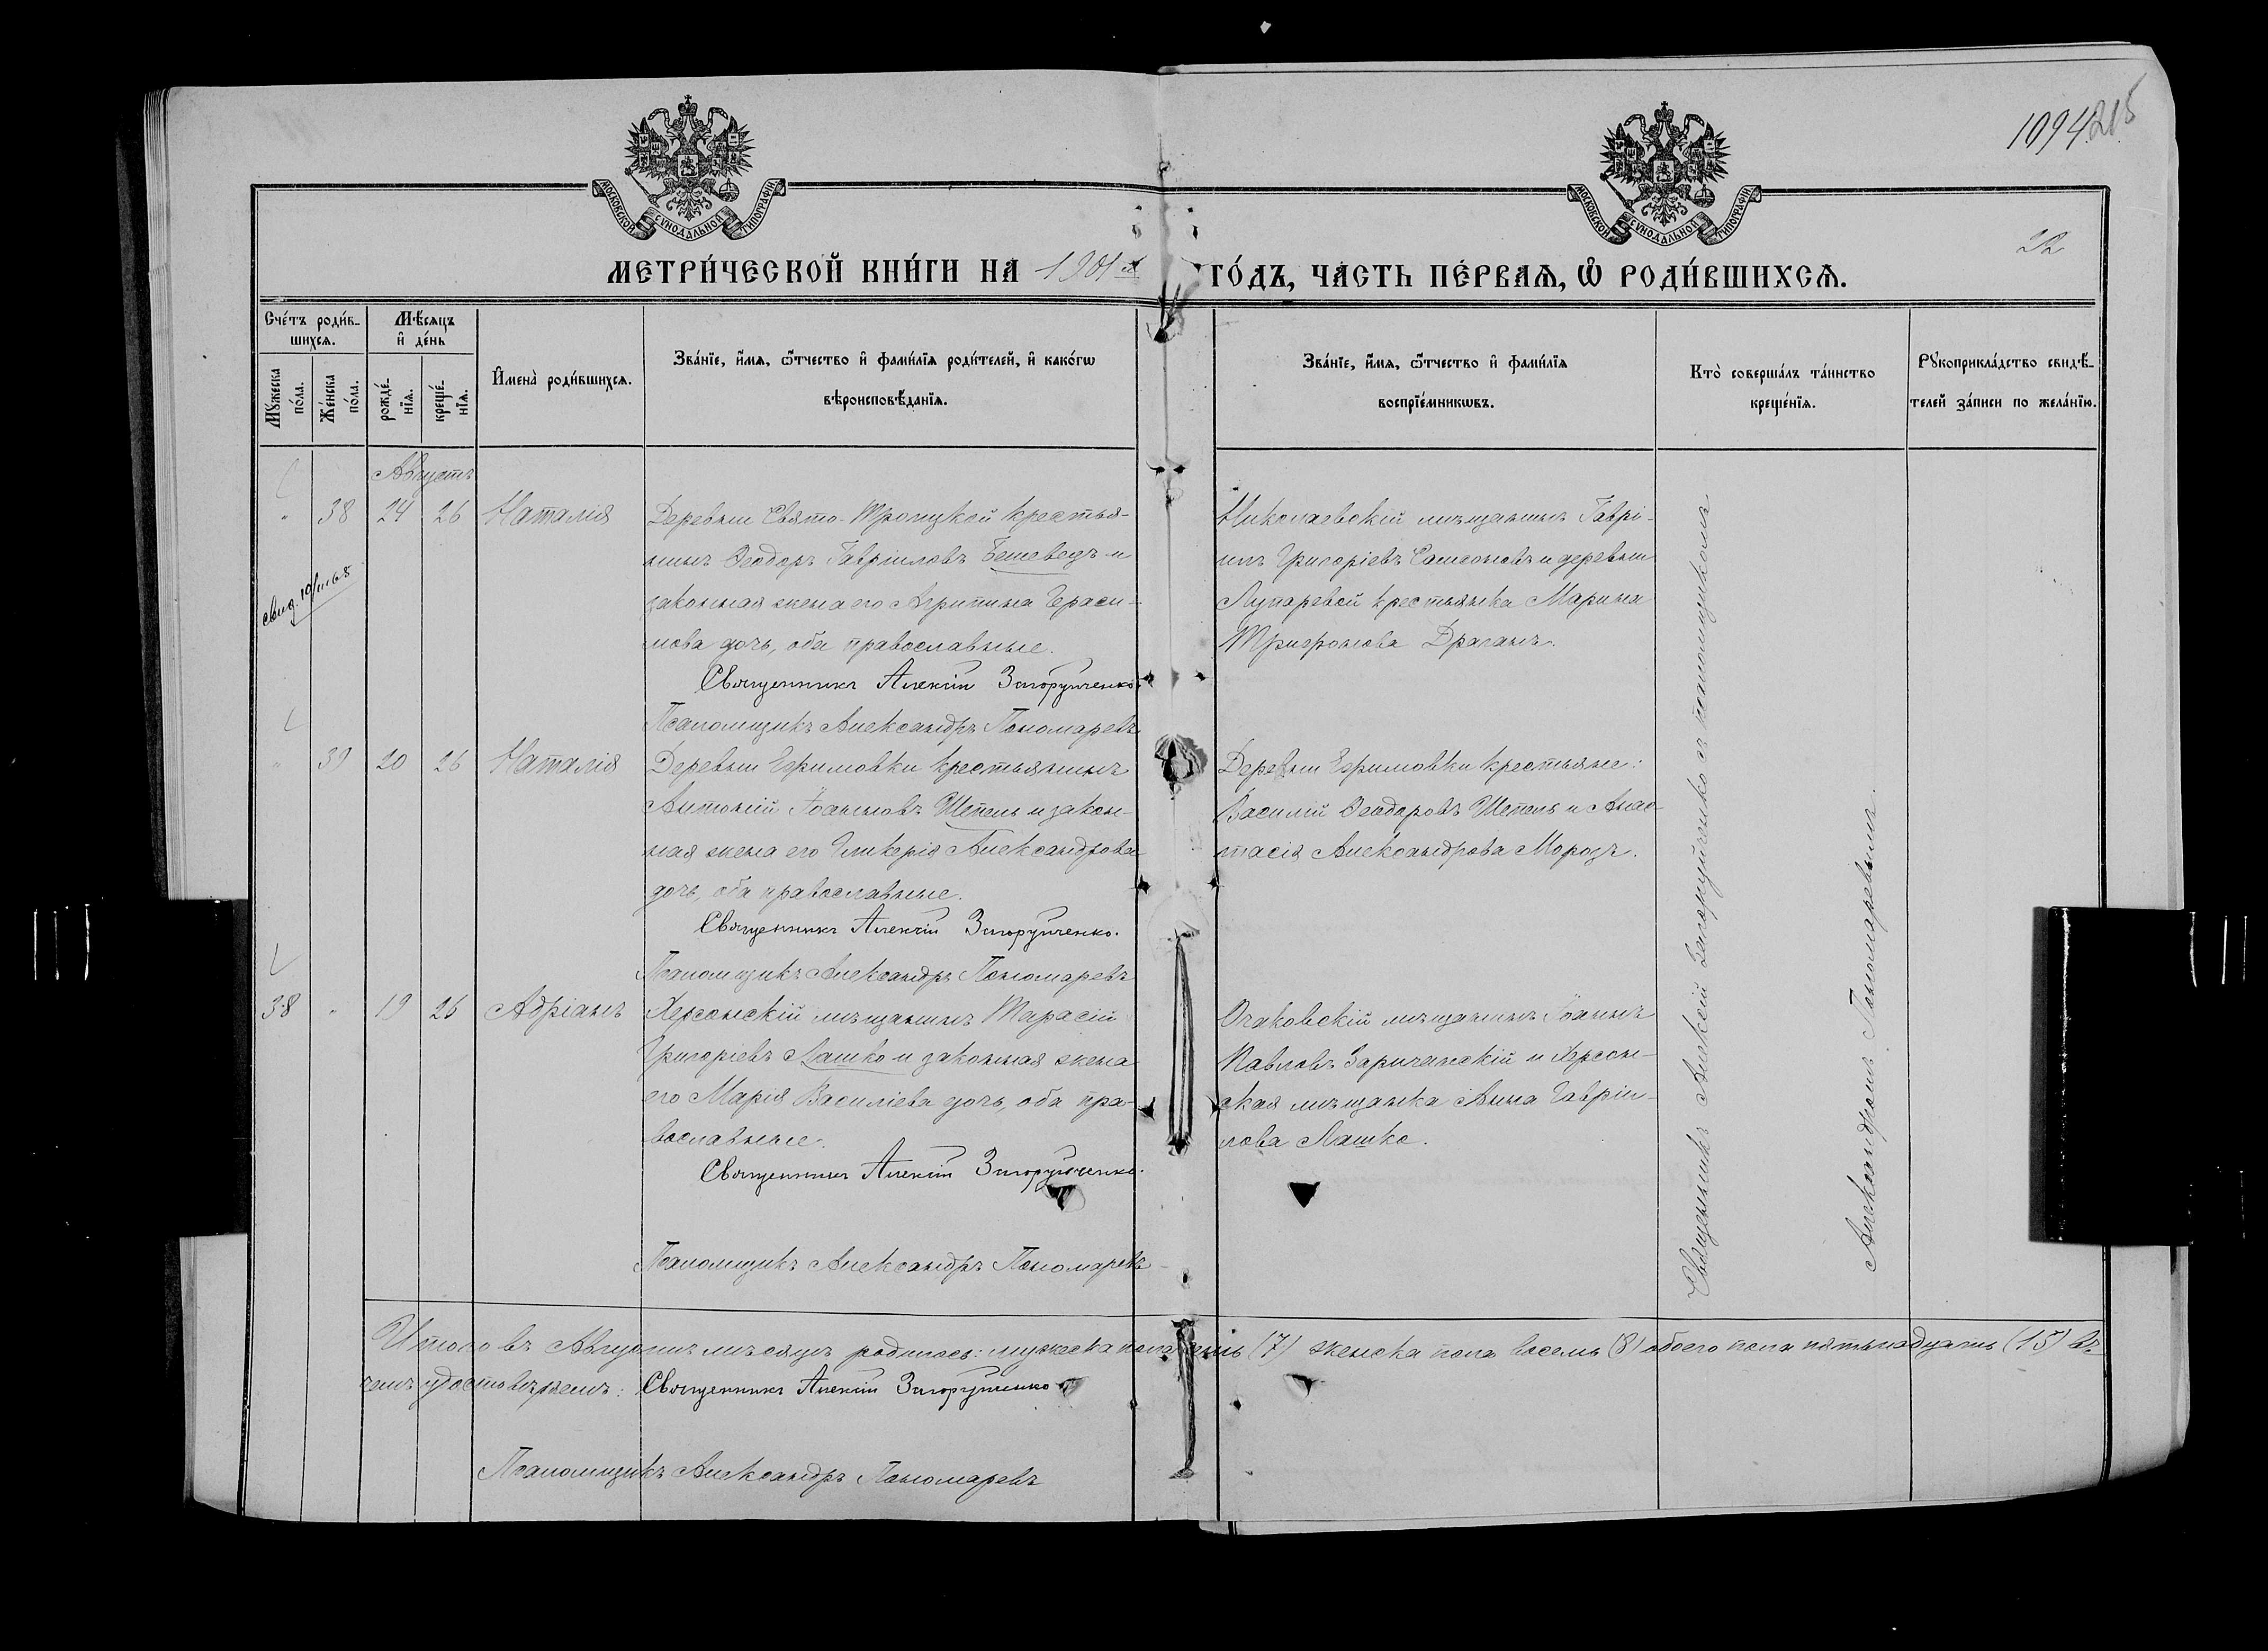 1094
215
МОСКОВСКОЙ СѴНОДАЛЬНОЙ ТИПОГРАФІИ
МОСКОВСКОЙ СѴНОДАЛЬНОЙ ТИПОГРАФІИ
22
МЕТРИ́ЧЕСКОЙ КНИ́ГИ НА 1901 й ГО́ДЪ, ЧА́СТЬ ПЕ́РВАѦ, Ѡ҆ РОДИ́ВШИХСѦ.
Сче́тъ роди́вшихсѧ.
Мꙋ́жеска по́ла.
Же́нска по́ла.
Мѣ́сяцъ и҆ де́нь
рожде́нїѧ.
креще́нїѧ.
И҆мена̀ роди́вшихсѧ.
Зва́нїе, и҆́мѧ, ѻ҆́тчество и҆ фами́лїѧ роди́телей, и҆ како́гѡ
вѣроисповѣ́данїѧ.
Зва́нїе, и҆́мѧ, ѻ҆́тчество и҆ фами́лїѧ
воспрїе́мникѡвъ.
Кто̀ соверша́лъ та́инство
креще́нїѧ.
Рꙋкоприкла́дство свидѣ́-
телей за́писи по жела́нїю.
Августъ
" 38 24 26 Наталія
Деревни Свято-Троицкой крестья-
нинъ Ѳеодоръ Гавріиловъ Бешевецъ и
законная жена его Агрипина Гераси-
мова дочь, оба православные.
Священникъ Алексій Запоруйченко.
Псаломщикъ Александръ Пономаревъ
Николаевскій мѣщанинъ Гаврі-
илъ Григоріевъ Самсоновъ и деревни
Лупаревой крестьянка Марина
Трифонова Драганъ.
свид. 10/III 68
" 39 20 26 Наталія
Деревни Ефимовки крестьянинъ
Антоній Іоанновъ Шепель и закон-
ная жена его Гликерія Александрова
дочь, оба православные.
Священникъ Алексій Запоруйченко.
Псаломщикъ Александръ Пономаревъ
Деревни Ефимовки крестьяне:
Василій Ѳеодоровъ Шепель и Анас-
тасія Александрова Морозъ.
38 " 19 26 Адріанъ
Херсонскій мѣщанинъ Тарасій
Григоріевъ Лашко и законная жена
его Марія Василіева дочь, оба пра-
вославные.
Священникъ Алексій Запоруйченко.
Псаломщикъ Александръ Пономаревъ
Очаковскій мѣщанинъ Іоаннъ
Павловъ Заричанскій и Херсон-
ская мѣщанка Анна Гавріи-
лова Лашко.
Священникъ Алексій Запоруйченко съ псаломщикомъ
Александромъ Пономаревымъ.
Итого въ Августѣ мѣсяцѣ родилось: мужеска пола семь (7) женска пола восемь (8) обоего пола пятнадцать (15) въ
чемъ удостовѣряемъ: Священникъ Алексій Запоруйченко
Псаломщикъ Александръ Пономаревъ